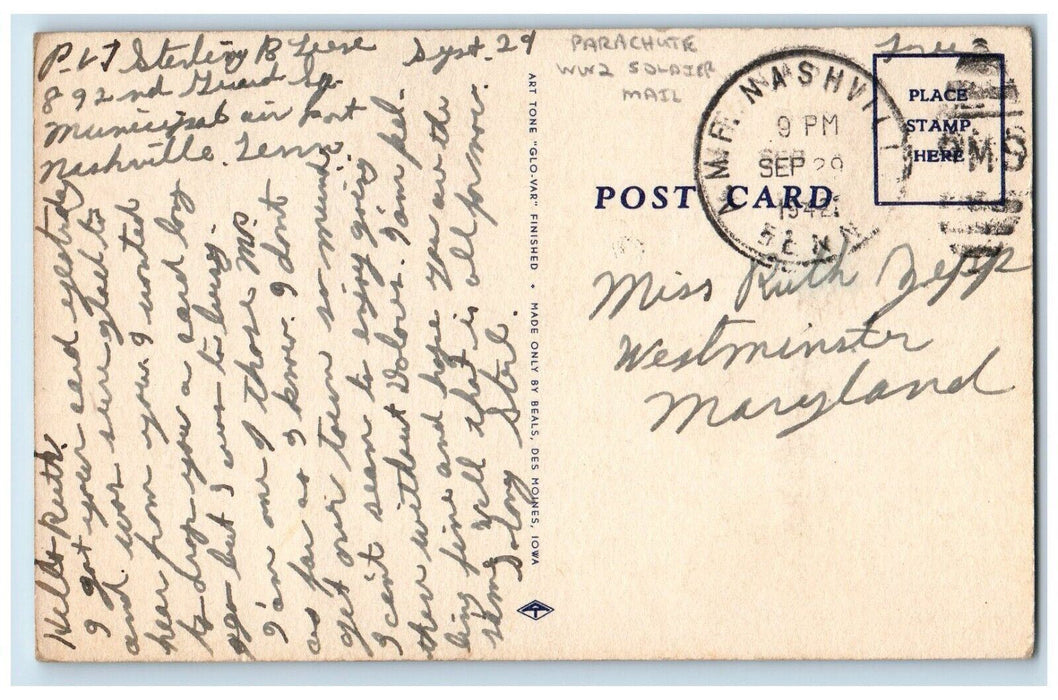 Pvt Sterling B Leese Sept. 29
892nd Guard Sq.
Municipal air port
Nashville. Tenn.
Hello Ruth.
I got your card yesterday
and wor sure glad to
hear from you. I wonted
to drop you a card long
ago but I wor to busy.
I'am one of those M.P.
as far as I know. I dont
get our town so much.
I can't seam to enjoy going
I cent without Dolores. I'am fel-
ling fine and hope you are the
same. Well that is all for now.
So Long Sterl.
ART TONE "GLO-VAR" FINISHED ♦ MADE ONLY BY BEALS, DES MOINES, IOWA
PARACHUTE
WW2 SOLDIER
MAIL
Free
NASHVILLE
9 PM
SEP 29
1942
TENN
PLACE
STAMP
HERE
POST CARD
Miss Ruth Zepp
Westminster
Maryland